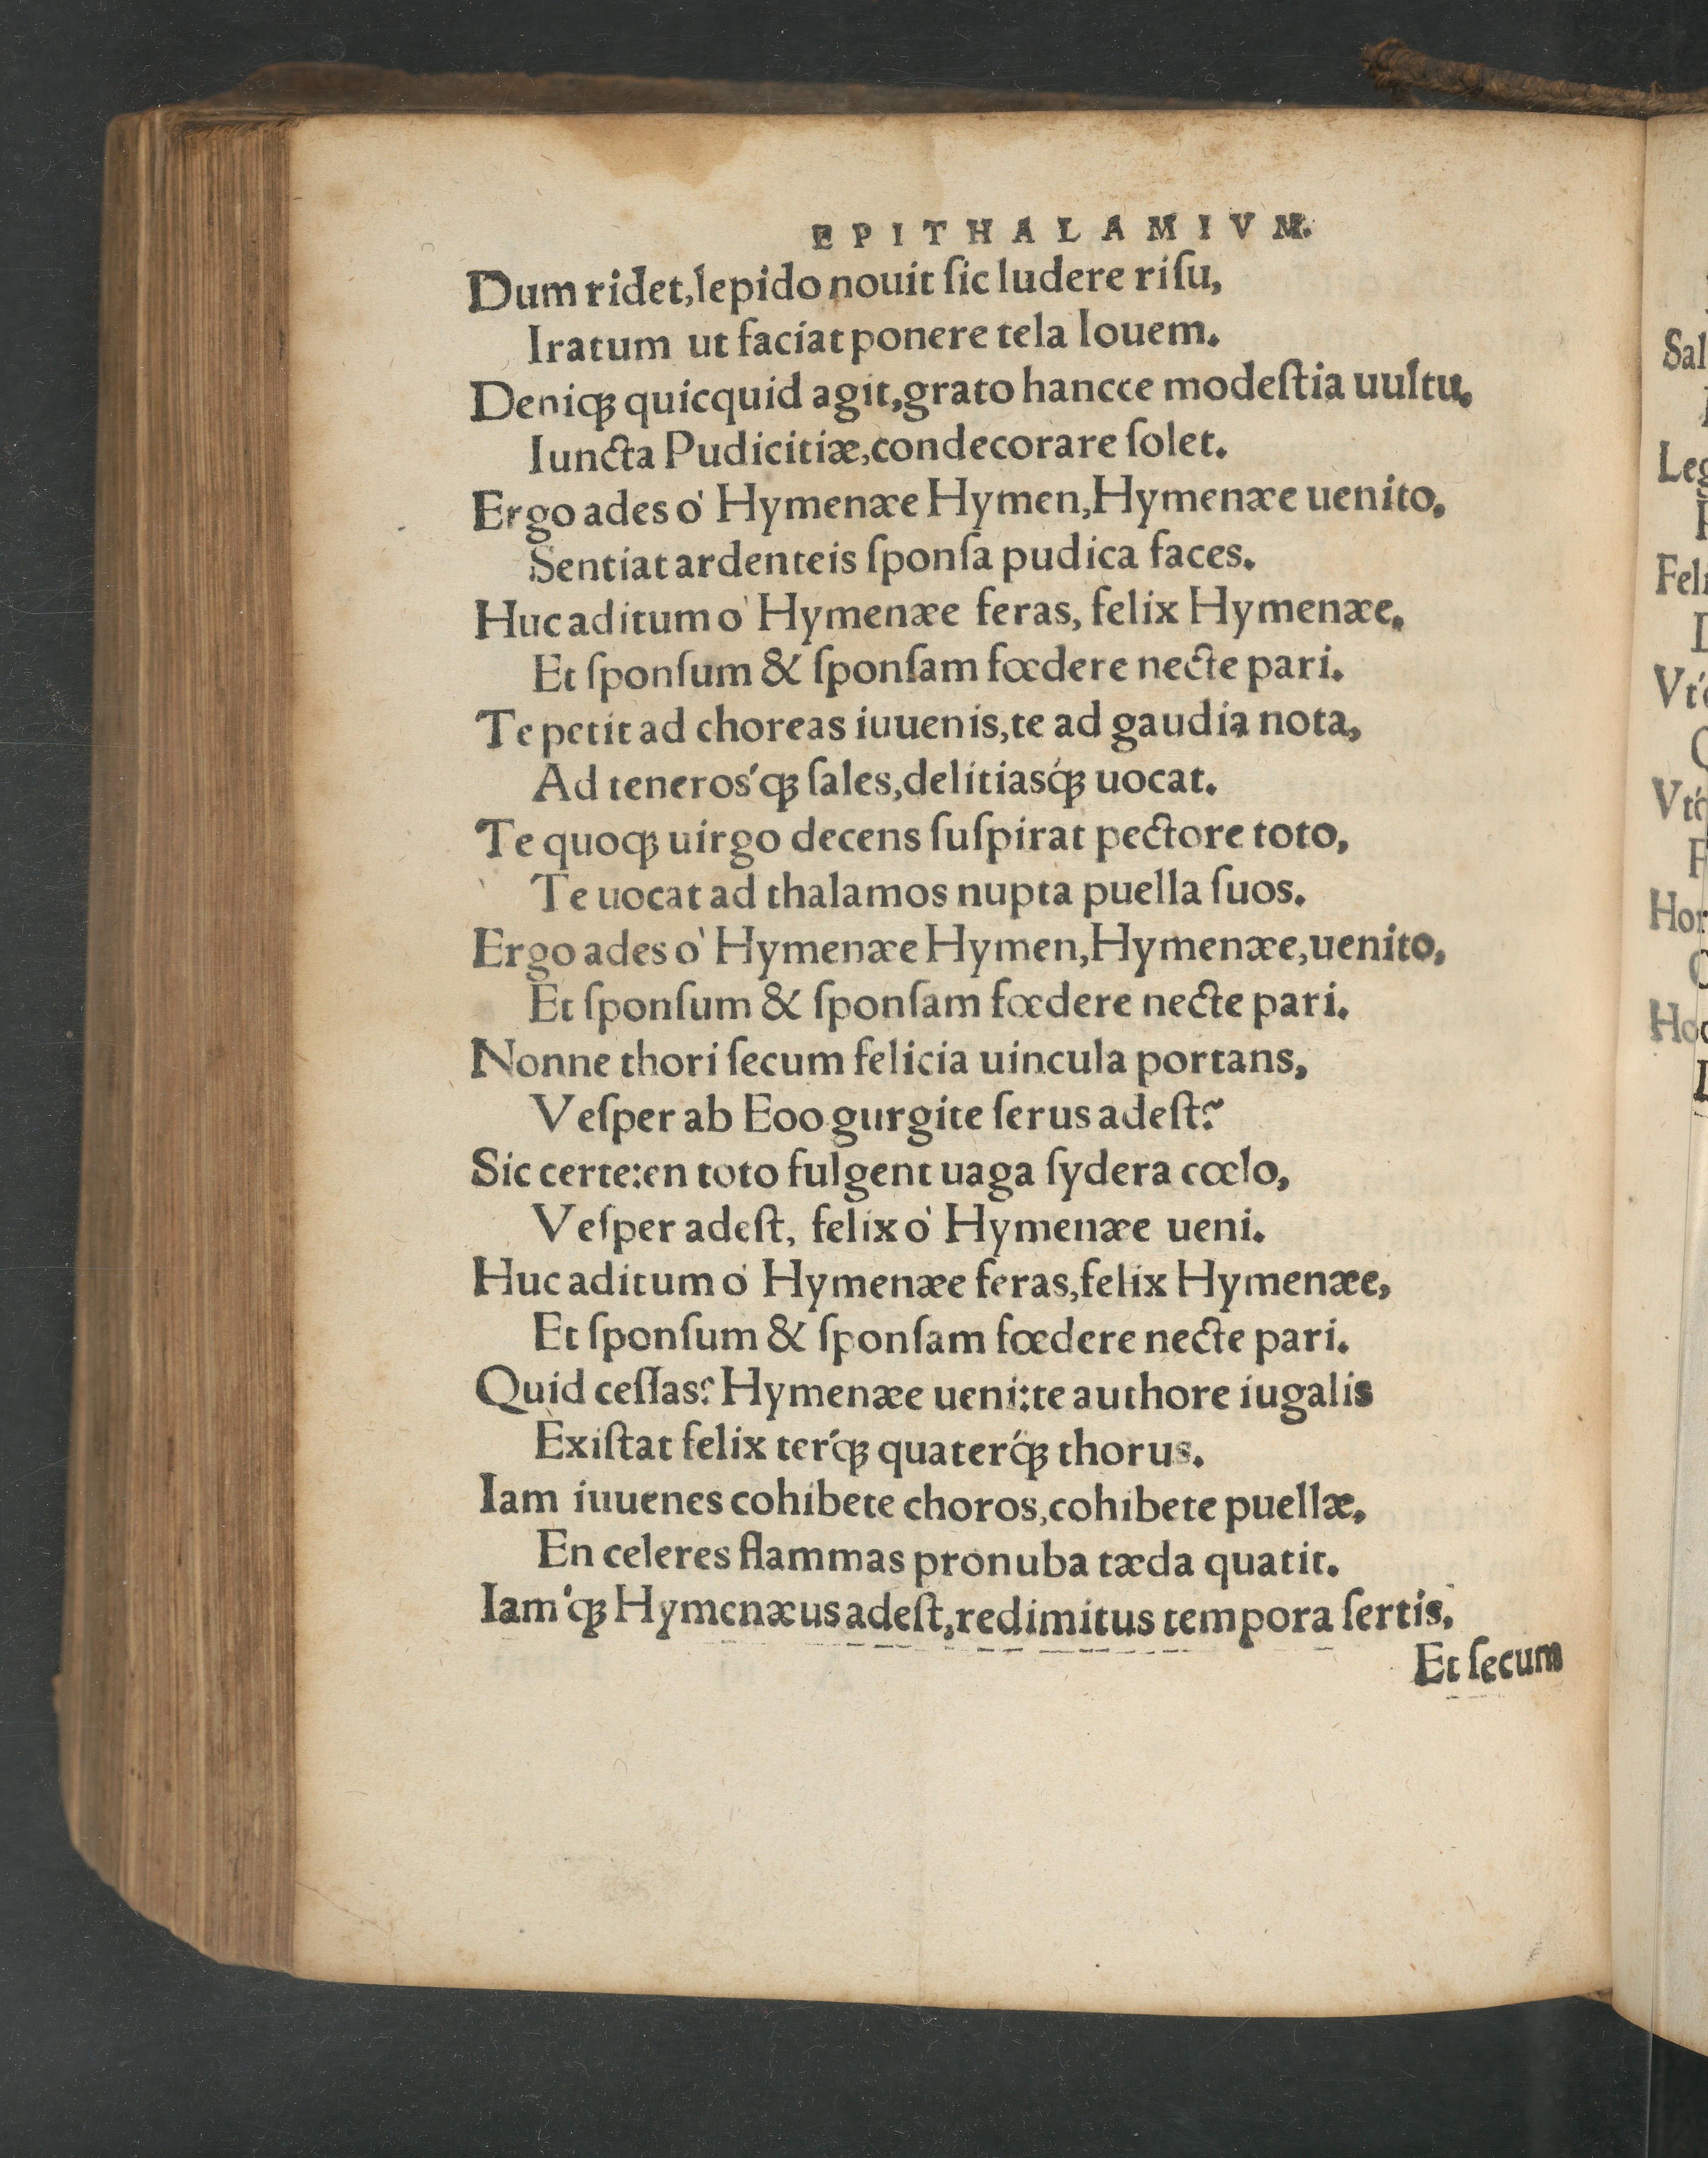 EPITHALAMIVM.
Dum ridet, lepido nouit ſic ludere riſu,
Iratum ut faciat ponere tela Iouem.
Deniqꝫ quicquid agit, grato hancce modeſtia uultu,
Iuncta Pudicitiæ, condecorare ſolet.
Ergo ades ò Hymenæe Hymen, Hymenæe uenito,
Sentiat ardenteis ſponſa pudica faces.
Huc aditum ò Hymenæe feras, felix Hymenæe,
Et ſponſum & ſponſam fœdere necte pari.
Te petit ad choreas iuuenis, te ad gaudia nota,
Ad teneros'qꝫ ſales, delitias'qꝫ uocat.
Te quoqꝫ uirgo decens ſuſpirat pectore toto,
Te uocat ad thalamos nupta puella ſuos.
Ergo ades ò Hymenæe Hymen, Hymenæe, uenito,
Et ſponſum & ſponſam fœdere necte pari.
Nonne thori ſecum felicia uincula portans,
Veſper ab Eoo gurgite ſerus adeſt?
Sic certe: en toto fulgent uaga ſydera cœlo,
Veſper adeſt, felix ò Hymenæe ueni.
Huc aditum ò Hymenæe feras, felix Hymenæe,
Et ſponſum & ſponſam fœdere necte pari.
Quid ceſſas? Hymenæe ueni: te authore iugalis
Exiſtat felix ter'qꝫ quater'qꝫ thorus.
Iam iuuenes cohibete choros, cohibete puellæ,
En celeres flammas pronuba tæda quatit.
Iam'qꝫ Hymenæus adeſt, redimitus tempora ſertis,
Et ſecum